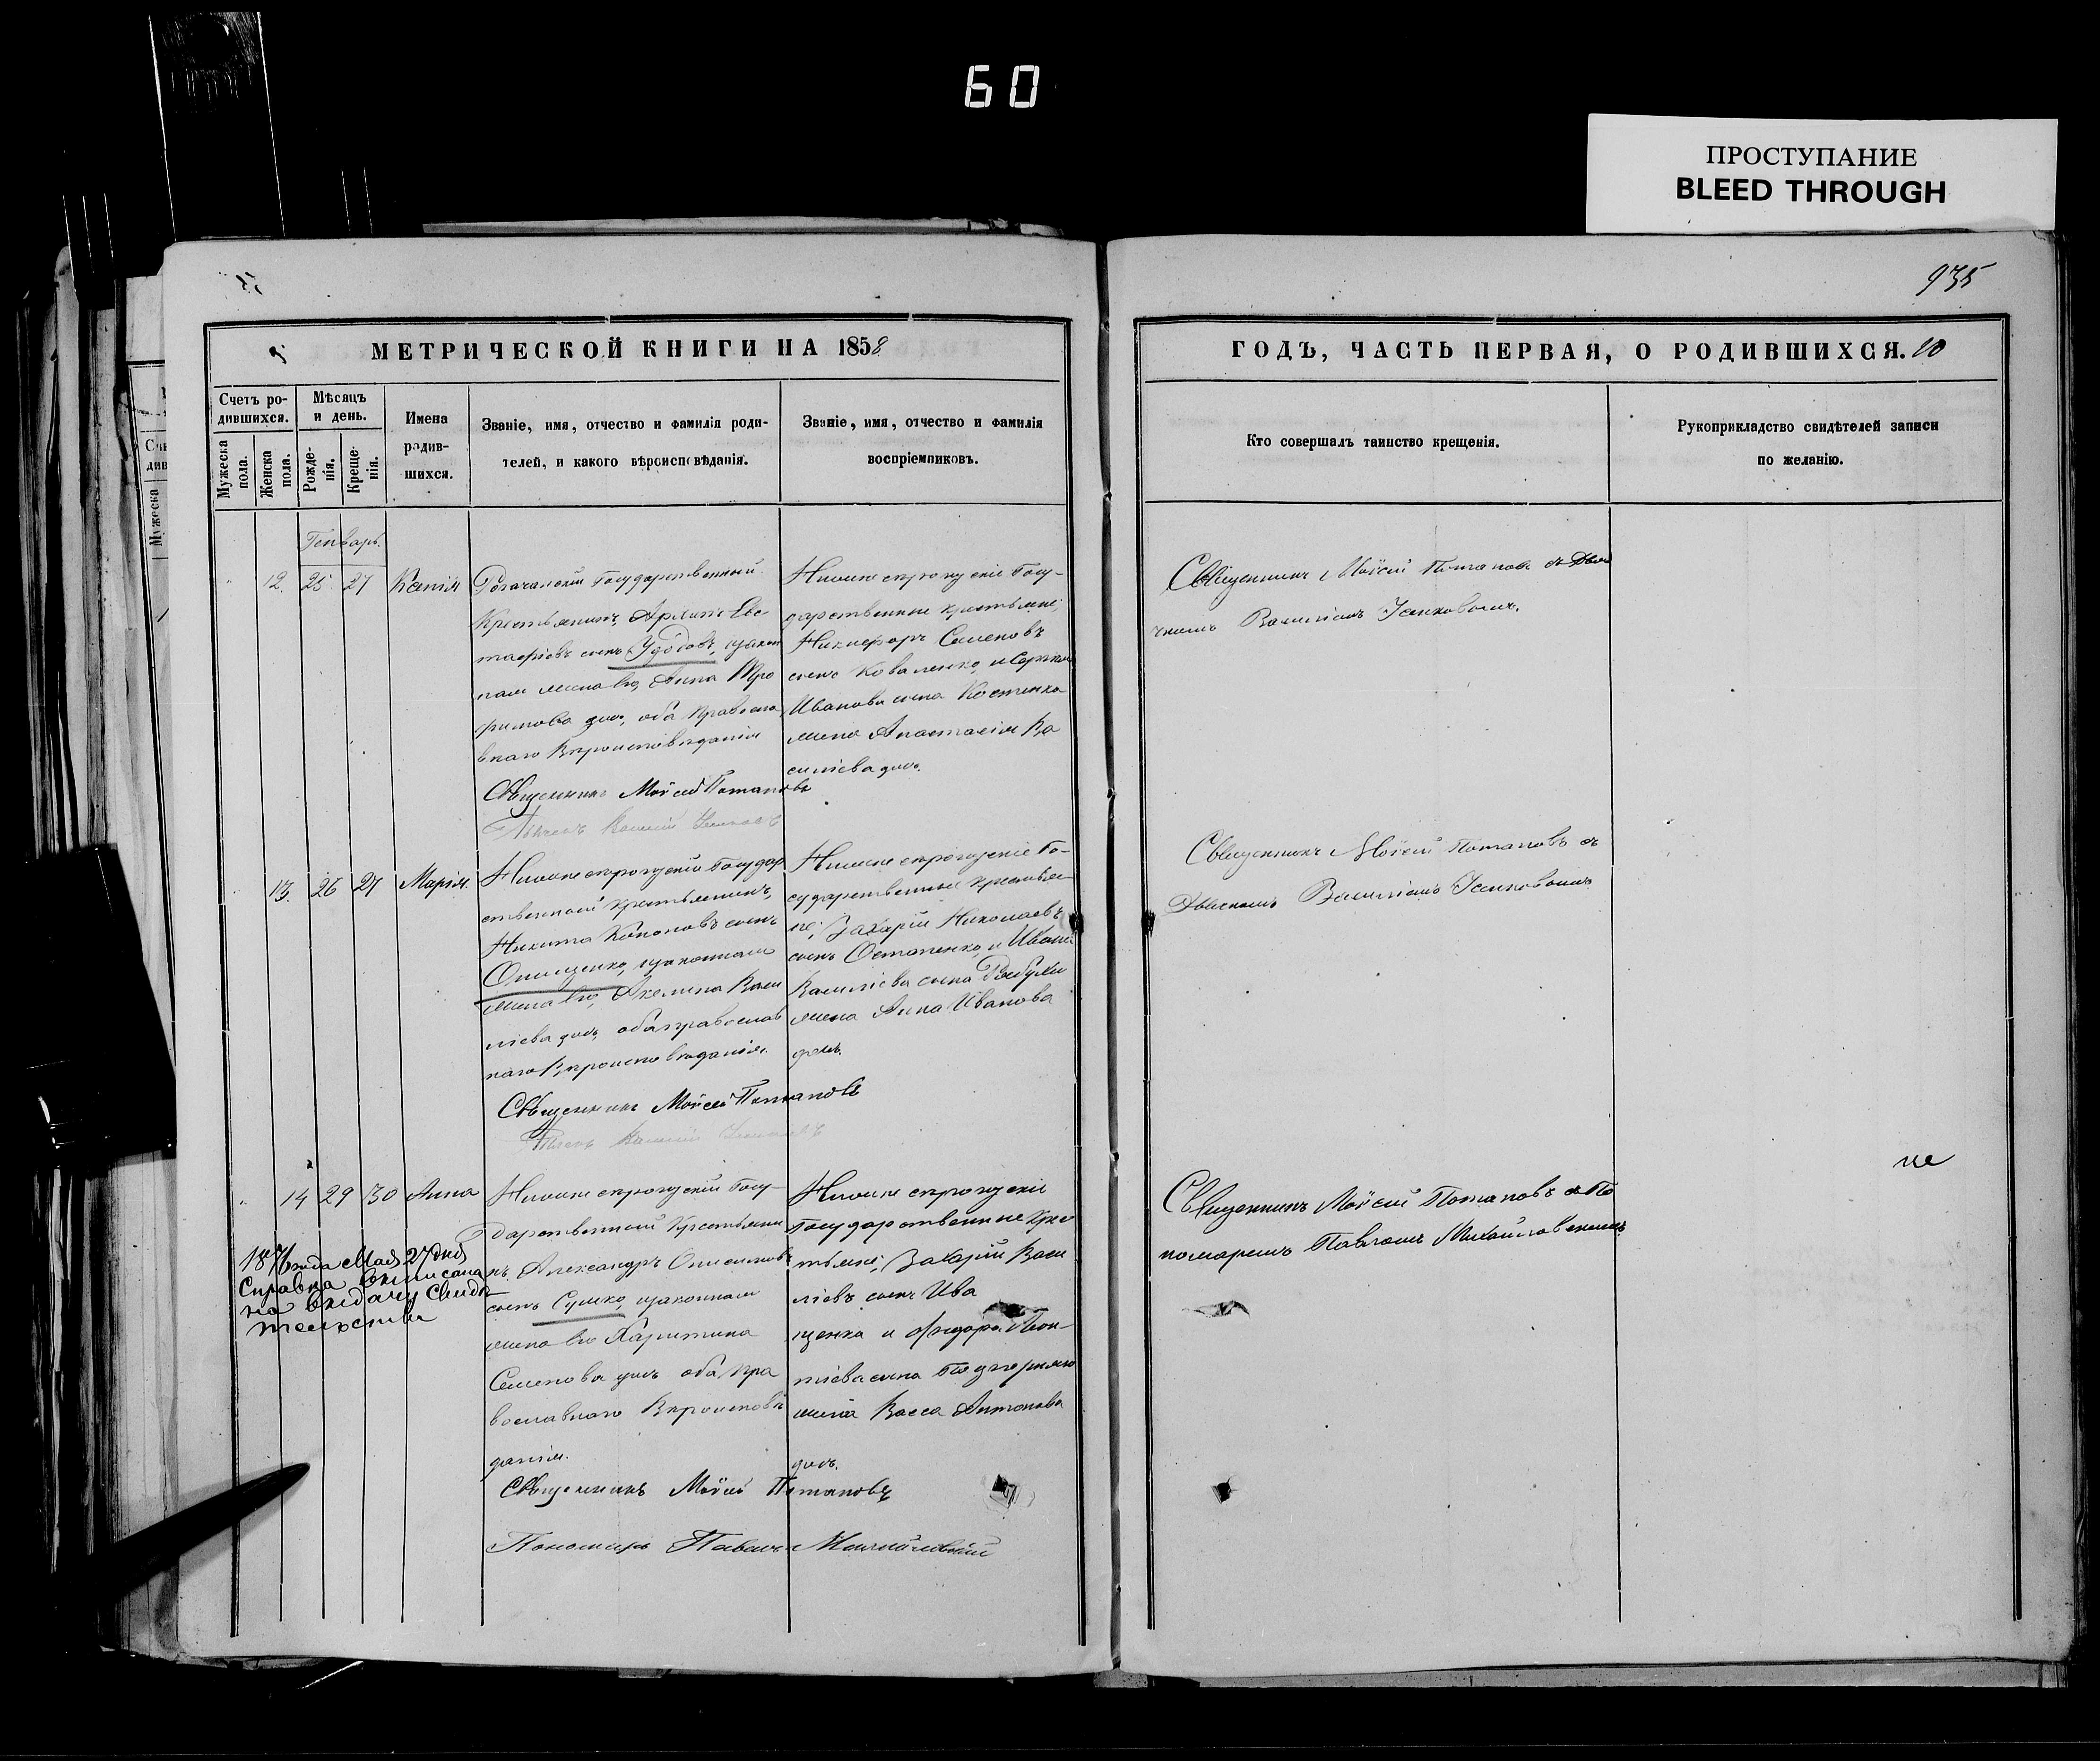 60
ПРОСТУПАНИЕ
BLEED THROUGH
935
МЕТРИЧЕСКОЙ КНИГИ НА 1858
ГОДЪ, ЧАСТЬ ПЕРВАЯ, О РОДИВШИХСЯ. 10
Счетъ ро-
дившихся.
Мужеска пола.
Женска пола.
Мѣсяцъ
и день.
Рожде-
нія.
Креще-
нія.
Имена
родив-
шихся.
Званіе, имя, отчество и фамилія роди-
телей, и какого вѣроисповѣданія.
Званіе, имя, отчество и фамилія
воспріемниковъ.
Кто совершалъ таинство крещенія.
Рукоприкладство свидѣтелей записи
по желанію.
Генварь.
12. 25 27 Ксенія
Государственный
Крестьянинъ, Евс-
тафіевъ сынъ Удодовъ, закон
ная жена его Анна Тро
фимова дочь, оба Правосла
внаго Вѣроисповѣданія
Священникъ Моѵсей Потаповъ
Нижнесѣрогузскіе Госу-
дарственные крестьяне,
Никифоръ Семеновъ
сынъ Коваленко, и
Иванова сына Костенка
жена Анастасія Ва
силіева дочь.
Священникъ Моѵсей Потаповъ съ Дья
чкомъ Василіемъ
13. 26 27 Марія.
Нижнесѣрогузскій Государ
ственный крестьянинъ,
Никита Кононовъ сынъ
Онищенко, законная
жена его, Акелина Васи
ліева дочь, оба православ
наго Вѣроисповѣданія.
Священникъ Моѵсей Потаповъ
Нижнесѣрогузскіе Го-
сударственные крестья
не, Захарій Николаевъ
сынъ Остапенко, и Ивана
Василіева сына
жена Анна Иванова
дочь.
Священникъ Моѵсей Потаповъ съ
Дьячкомъ Василіемъ
14 29 30 Анна
Нижнесѣрогузскій Госу-
дарственный Крестьяни
нъ, Александръ Онисимовъ
сынъ Сушко, законная
жена его Харитина
Семенова дочь оба Пра
вославнаго Вѣроисповѣ
данія.
Священникъ Моѵсей Потаповъ
Пономарь Павелъ Михайловскій
Нижнесѣрогузскіе
Государственные Крес
тьяне, Захарій Васи
ліевъ сынъ Ива
щенко и Ѳедора
тіева сына
жена Васса Антонова
дочь.
Священникъ Моѵсей Потаповъ съ По
номаремъ Павломъ Михайловскимъ
1876 года Мая 27 дня
Справка выписана
на выдачу Свидѣ
тельства
не